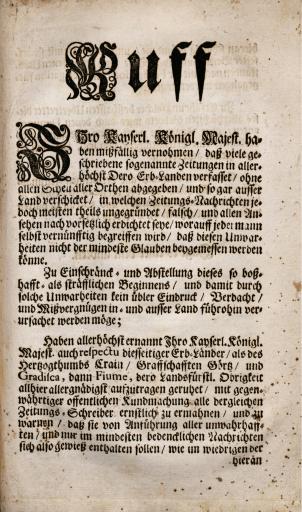 Auff
IHro Kayserl. Königl. Majest. ha-
ben mißfällig vernohmen / daß viele ge-
schriebene sogenannte Zeitungen in aller-
höchst Dero Erb-Landen verfasset / ohne
allen Scheu aller Orthen abgegeben / und so gar ausser
Land verschicket / in welchen Zeitungs-Nachrichten je-
doch meisten theils ungegründet / falsch / und allen An-
sehen nach vorsetzlich erdichtet seye / worauff jederman
selbst vernünfftig begreiffen wird / daß diesen Unwar-
heiten nicht der mindeste Glauben beygemessen werden
könne.
Zu Einschränck- und Abstellung dieses so boß-
hafft- als sträfflichen Beginnens / und damit durch
solche Unwarheiten kein übler Eindruck / Verdacht /
und Mißvergnügen in- und ausser Land führohin ver-
ursachet werden möge;
Haben allerhöchst ernannt Ihro Kayserl. Königl.
Majest. auch respectu diesseitiger Erb-Länder / als des
Hertzogthumbs Crain / Graffschafften Görtz / und
Gradisca, dann Fiume, dero Landsfürstl. Obrigkeit
allhier allergnädigst auffzutragen geruhet / mit gegen-
währtiger offentlichen Kundmachung alle dergleichen
Zeitungs-Schreiber ernstlich zu ermahnen / und zu
warnen / daß sie von Anführung aller unwahrhaff-
ten / und nur im mindesten bedencklichen Nachrichten
sich also gewiß enthalten sollen / wie im wiedrigen der
hieran